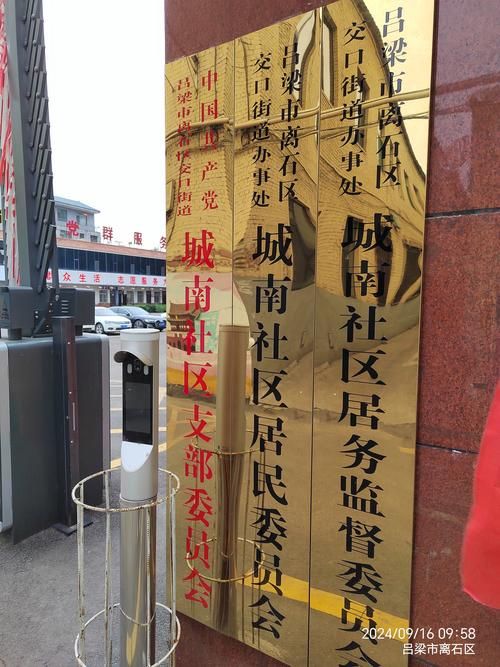 吕梁市离石区
交口街道办事处
城南社区居务监督委员会
吕梁市离石区
交口街道办事处
城南社区居民委员会
中国共产党
吕梁市离石区交口街道
城南社区支部委员会
党群服务
众生活 志愿服务
2024/09/16 09:58
吕梁市离石区